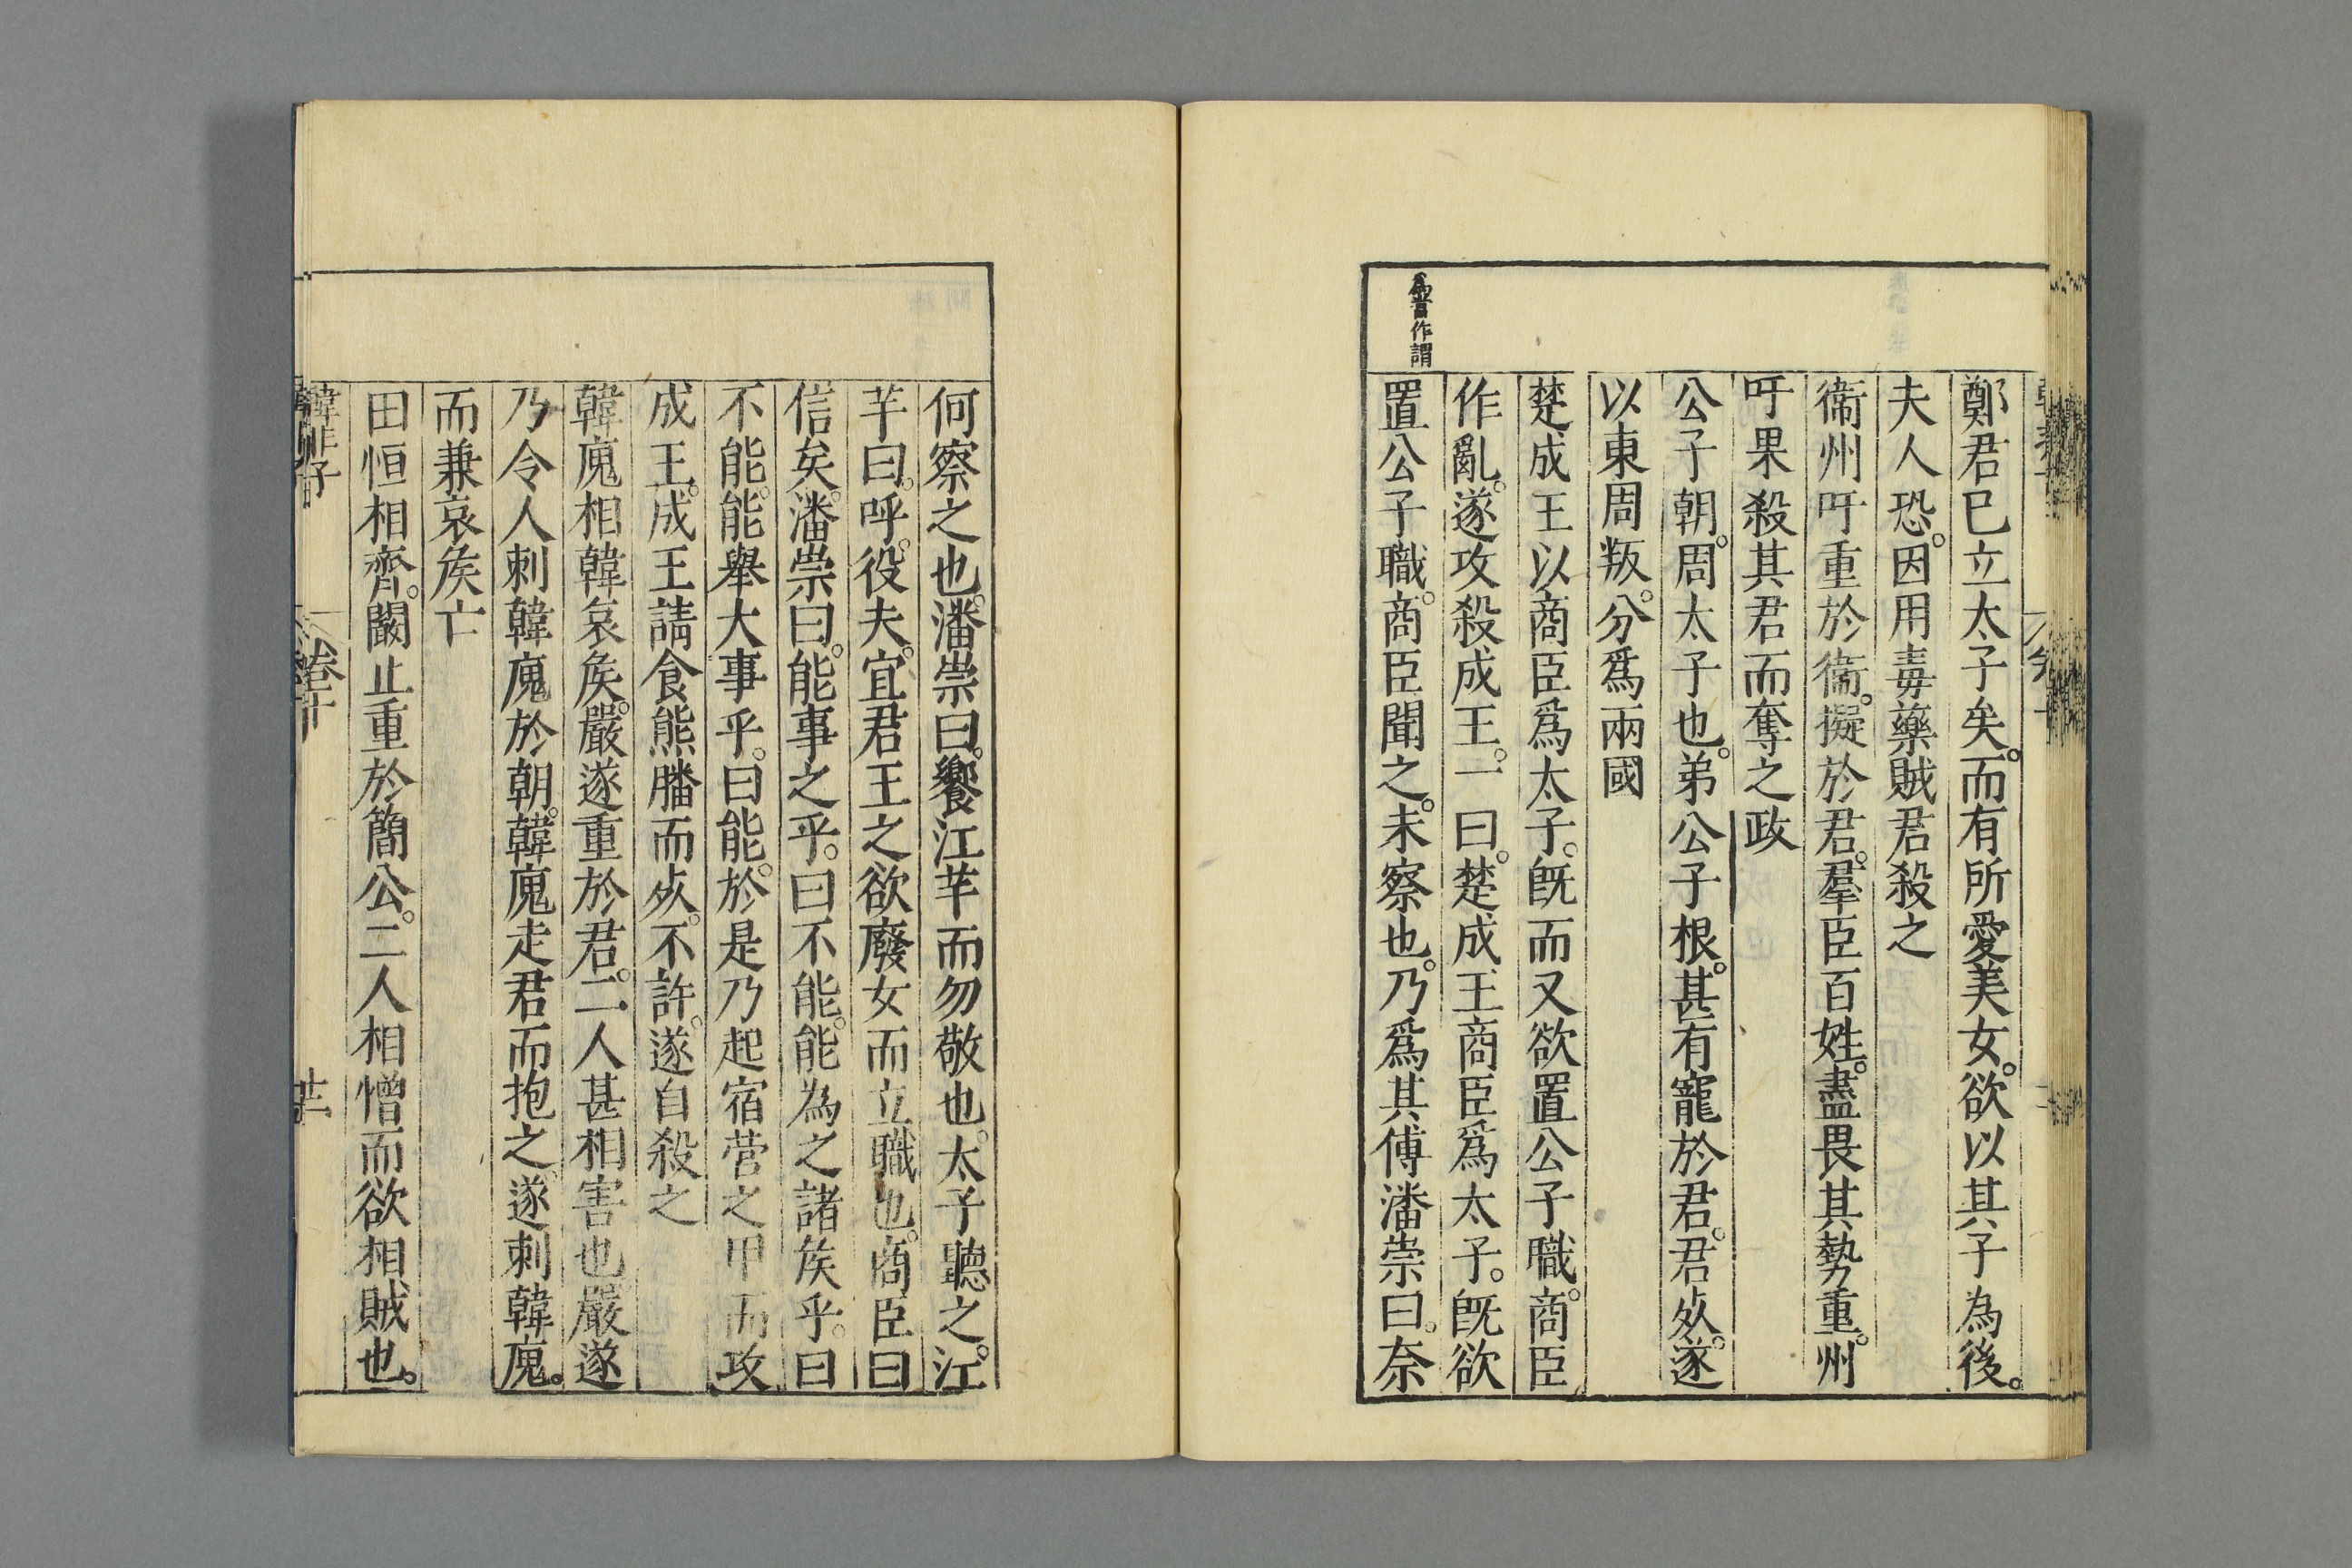 鄭君已立太子矣。而有所愛美女。欲以其子為後。
夫人恐。因用毒藥賊君殺之
衞州吁重於衞。擬於君。羣臣百姓。盡畏其勢重。州
吁果殺其君而奪之政
公子朝。周太子也。弟公子根。甚有寵於君。君歿。遂
以東周叛。分爲兩國
楚成王以商臣爲太子。旣而又欲置公子職。商臣
作亂。遂攻殺成王。一曰。楚成王商臣爲太子。旣欲
爲當作謂
置公子職。商臣聞之。未察也。乃爲其傅潘崇曰。奈
何察之也。潘崇曰。饗江芉而勿敬也。太子聽之。江
芉曰。呼。役夫。宜君王之欲廢女而立職也。商臣曰
信矣。潘崇曰。能事之乎。曰不能。能為之諸矦乎。曰
不能。能舉大事乎。曰能。於是乃起宿营之甲而攻
成王。成王請食熊膰而歿。不許。遂自殺之
韓廆相韓哀矦。嚴遂重於君。二人甚相害也嚴遂
乃令人刺韓廆於朝。韓廆走君而抱之。遂刺韓廆。
而兼哀矦亡
田恒相齊。闞止重於簡公。二人相憎而欲相賊也。
韓非子 卷十 廿二